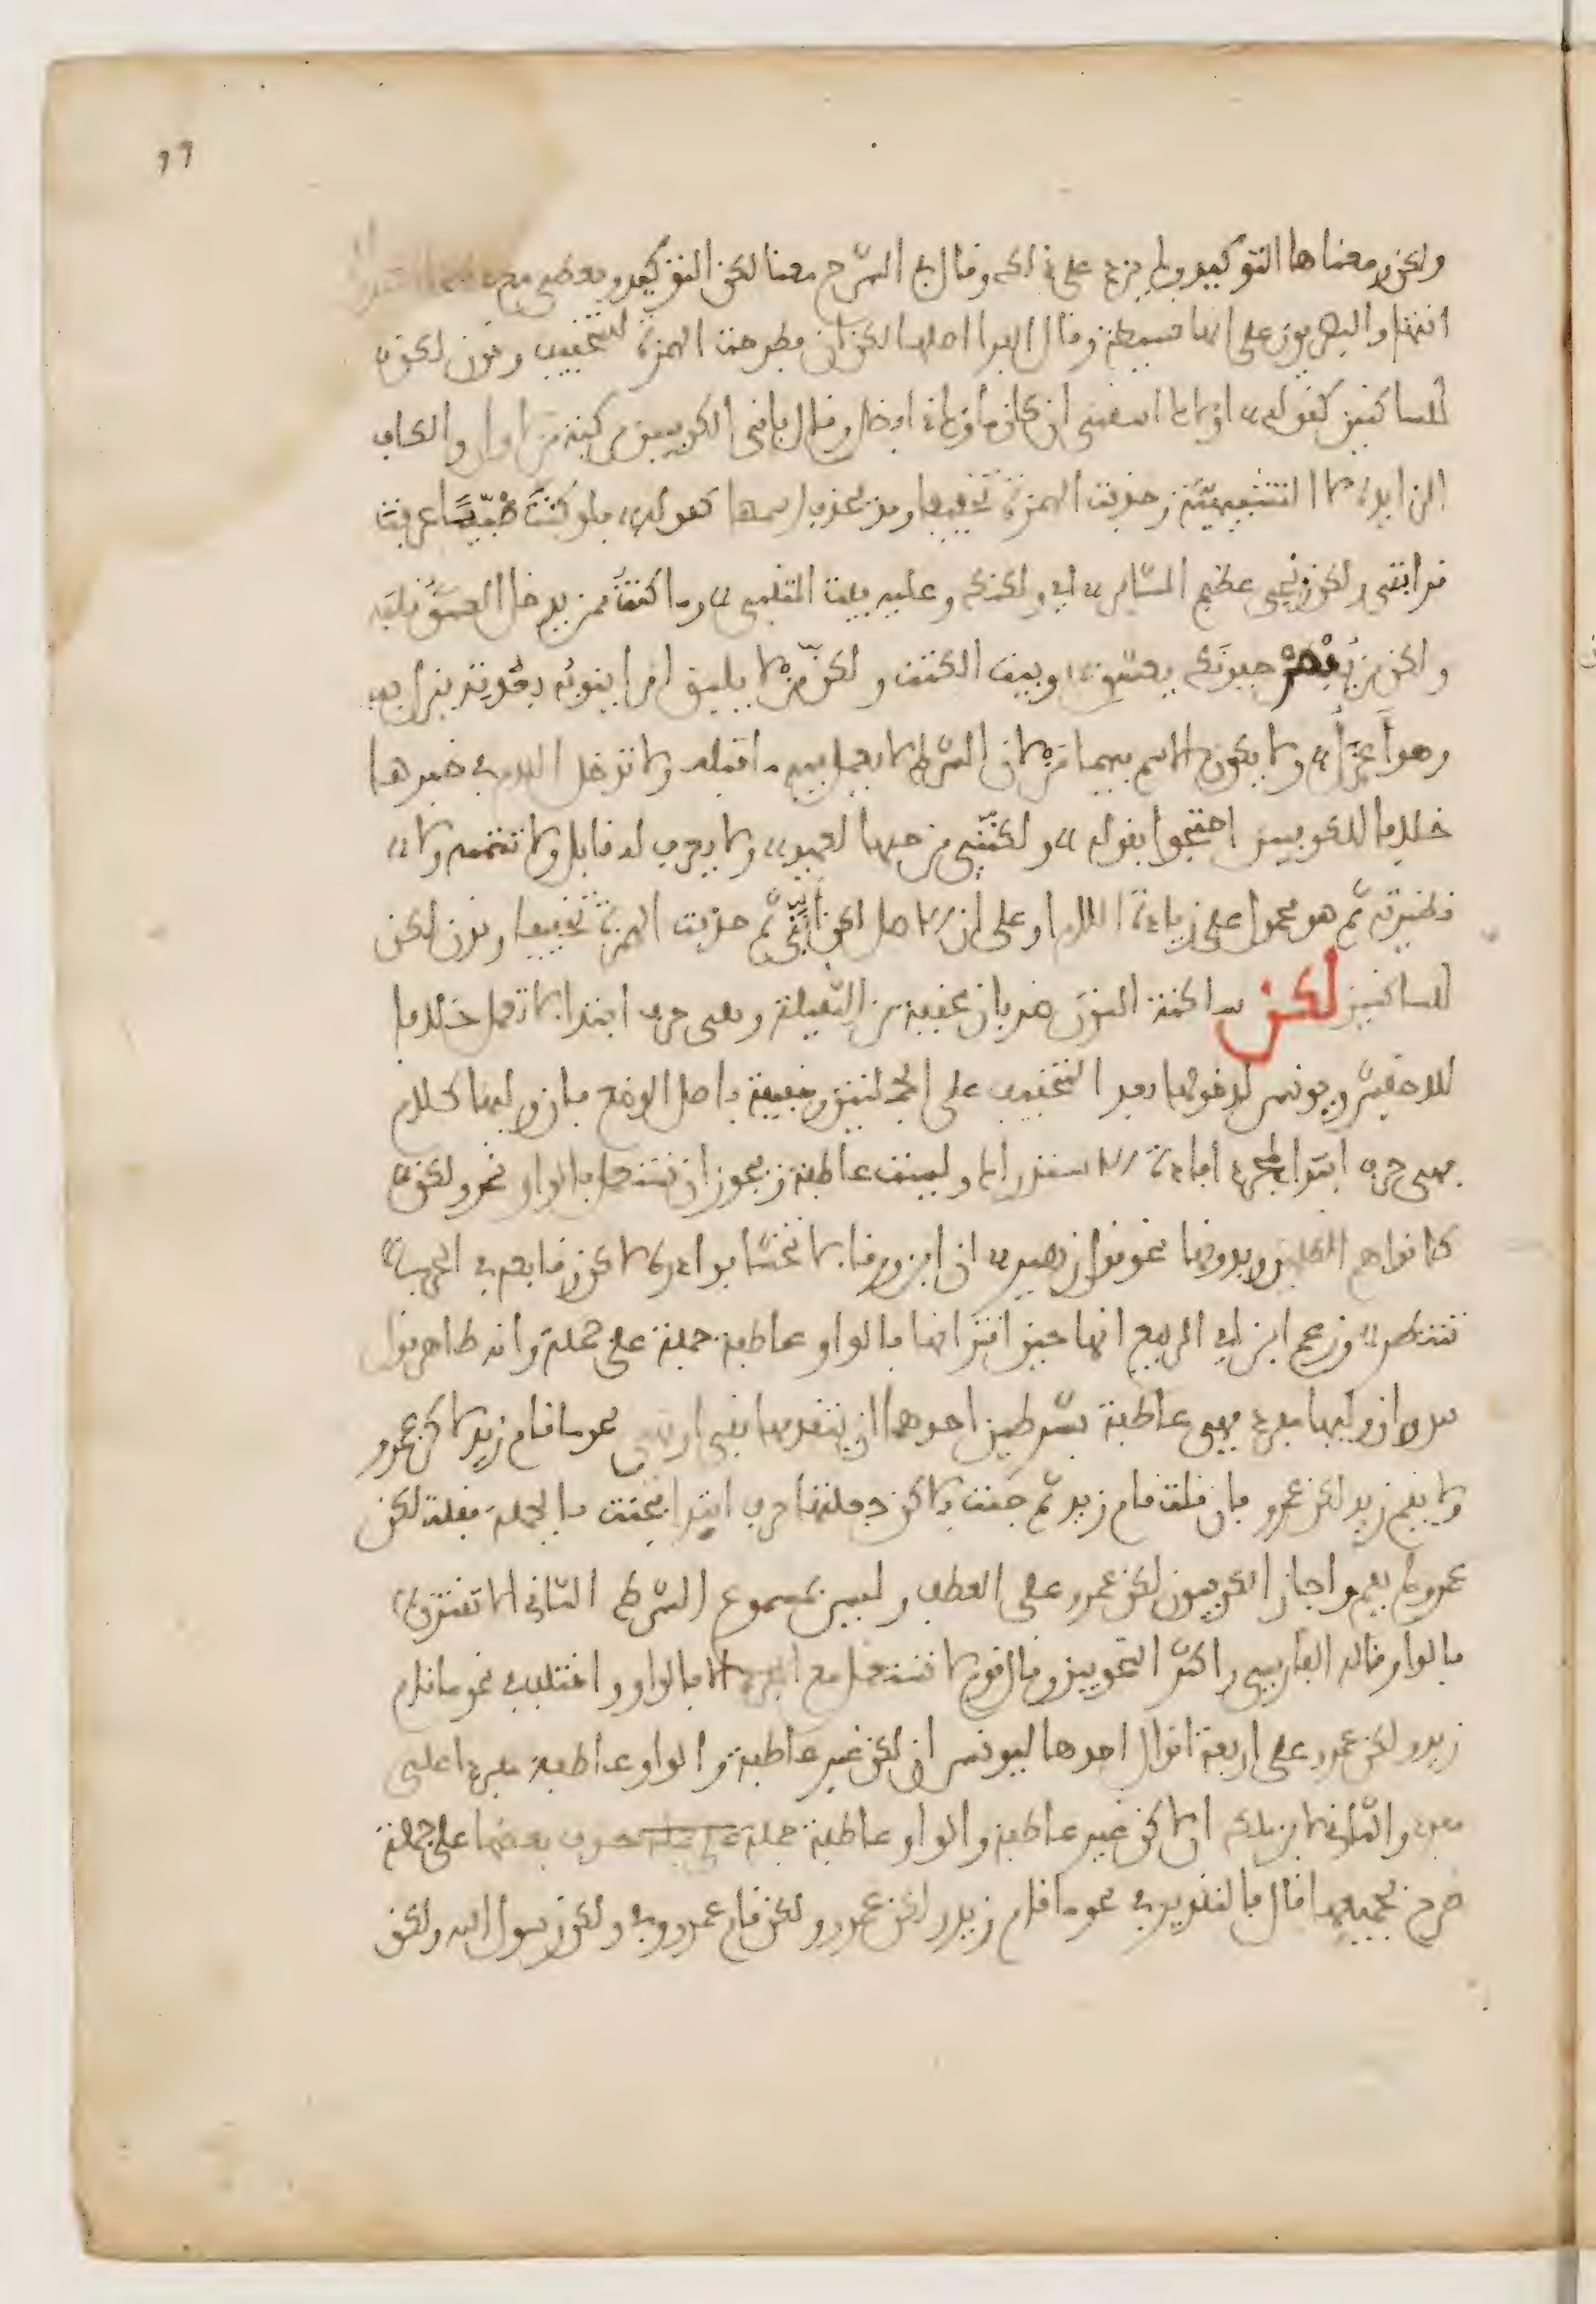 ولكن ومعناها التوكيد ولم يزد على ذلك وقال في الشرح معنا لكن التوكيد وتعطي مع
انتهى والبصريون على انها بسيطة وقال الفرا اصلها لكن ان فطرحت الهمزة للتخفيف ونون لكن
للساكنين كقوله ولاك اسقني ان كان ماؤك ذا فضل وقال باقي الكوفيين مركبة من لا وان والكاف
الزايدة لا التشبيهية وحذفت الهمزة تخفيفا وقد يحذف اسمها كقوله فلو كنتَ ضَبّيًّا عرفت
قرابتي ولكن زنجي عظيم المشافر اي ولكنك وعليه بيت المتنبي وما كنتُ ممن يدخل العشقُ قلبَه
ولكن من يُبْصِرْ جفونَك يعشق وبيت الكتاب ولكنّ من لا يلق امرا ينوبُه بعُدّته ينزل به
وهو أعزلُ ولا يكون الاسم فيهما من لان الشرط لا يعمل فيه ما قبله ولا تدخل اللام في خبرها
خلافا للكوفيين احتجوا بقوله ولكنّني من حبها لعميد ولا يعرف له قايل ولا تتمة ولا
نظير ثم هو محمول على زيادة اللام او على ان الاصل لكن إنّني ثم حذفت الهمزة تخفيفا ونون لكن
للساكنين لكن ساكنة النون ضربان مخففة من الثقيلة وهي حرف ابتدا لا تعمل خلافا
للاخفش ويونس لدخولها بعد التخفيف على الجملتين وخفيفة باصل الوضع فان وليها كلام
فهي حرف ابتدا لمجرد افادة الاستدراك وليست عاطفة ويجوز ان تستعمل بالواو نحو ولكن
كانوا هم الظالمين وبدونها نحو قول زهير ان ابن ورقا لا تخشا بوادره لكن وقايعه في الحرب
تنتظر وزعم ابن ابي الربيع انها حين اقترانها بالواو عاطفة جملة على جملة وانه ظاهر قول
س وان وليها مفرد فهي عاطفة بشرطين احدهما ان يتقدمها نفي او نهي نحو ما قام زيد لكن عمرو
ولا يقم زيد لكن عمرو فان قلت قام زيد ثم جئت بلكن جعلتها حرف ابتدا فجئت بالجملة فقلت لكن
عمرو لم يقم واجاز الكوفيون لكن عمرو على العطف وليس بمسموع الشرط الثاني الا تقترن
بالواو قاله الفارسي واكثر النحويين وقال قوم لا تستعمل مع المفرد الا بالواو واختلف في نحو ما قام
زيد ولكن عمرو على اربعة اقوال احدها ليونس ان لكن غير عاطفة والواو عاطفة مفردا على
مفرد والثاني لابن ملك ان لكن غير عاطفة والواو عاطفة جملة حذف بعضها على جملة
صرح بجميعها قال فالتقدير في نحو ما قام زيد ولكن عمرو ولكن قام عمرو وفي ولكن رسول الله ولكن